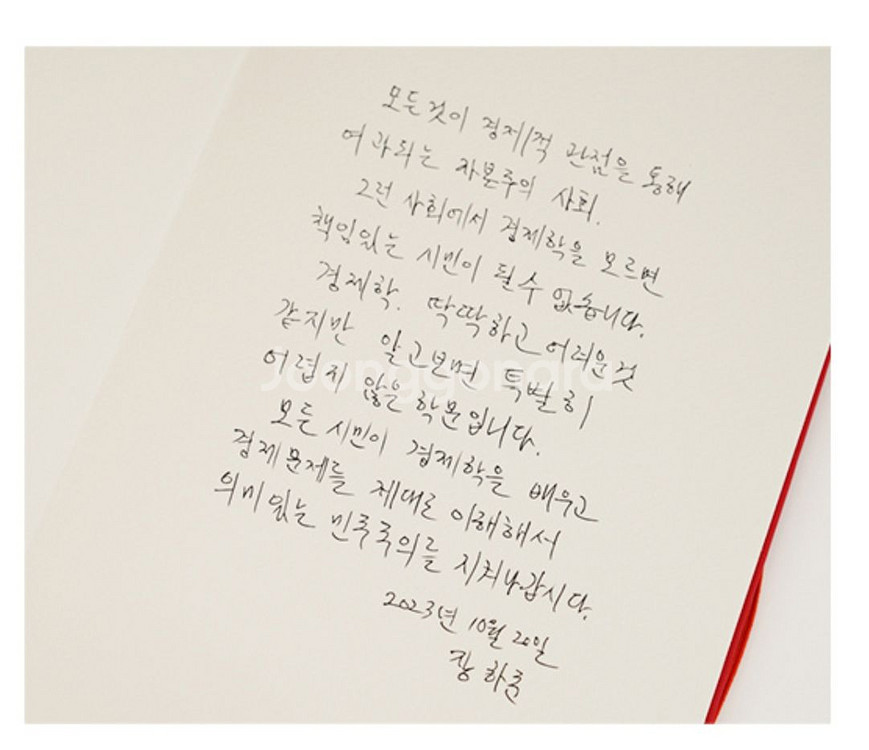 모든것이 경제적 관점을 통해
여과되는 자본주의 사회.
그런 사회에서 경제학을 모르면
책임있는 시민이 될수 없습니다.
경제학. 딱딱하고 어려운것
같지만 알고보면 특별히
어렵지 않은 학문입니다.
모든 시민이 경제학을 배우고
경제문제를 제대로 이해해서
의미있는 민주주의를 지켜나갑시다.
2023년 10월 20일
장하준
Joonggonara